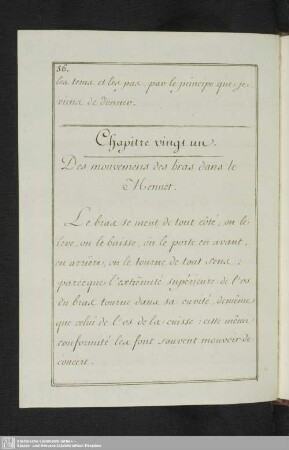 56.
les tems et les pas, par le principe que je
viens de donner.
Chapitre vingt un.
Des mouvemens des bras dans le
Menuet.
Le bras se meut de tout côté, on le
lève, on le baisse, on le porte en avant,
en arrière, on le tourne de tout sens;
parceque l'extrémité supérieure de l'os
du bras tourne dans sa cavité, de même
que celui de l'os de la cuisse: cette même
conformité les font souvent mouvoir de
concert.